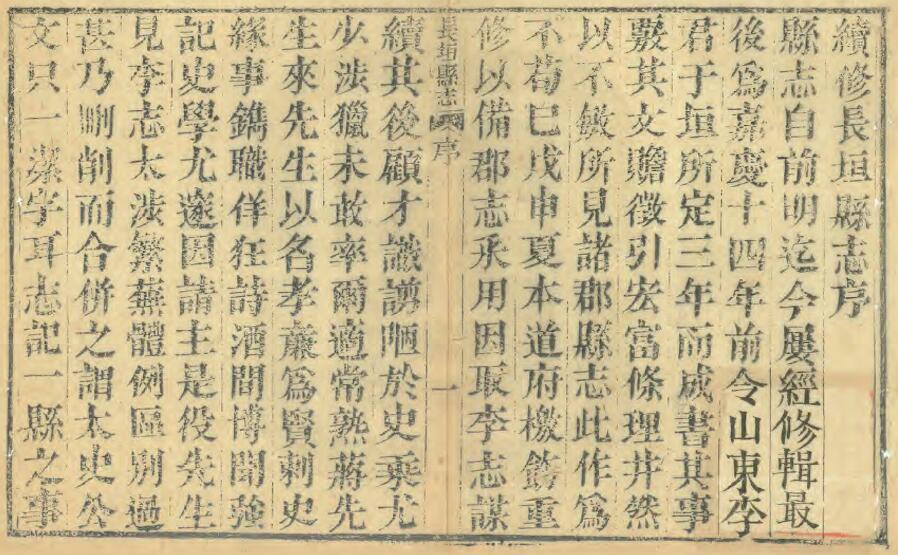 續修長垣縣志序
縣志自前明迄今屢經修輯最
後爲嘉慶十四年前令山東李
君于垣所定三年而成書其事
覈其文贍徵引宏富條理井然
以不敏所見諸郡縣志此作爲
不苟已戊申夏本道府檄飭重
修以備郡志采用因取李志謀
長垣縣志 序 一
續其後顧才識謭陋於史乘尤
少涉獵未敢率爾適常熟蔣先
生來先生以名孝廉爲賢刺史
緣事鐫職佯狂詩酒間博聞強
記史學尤邃因請主是役先生
見李志太涉繁蕪體例區別過
甚乃刪削而合併之謂太史公
文只一潔字耳志記一縣之事